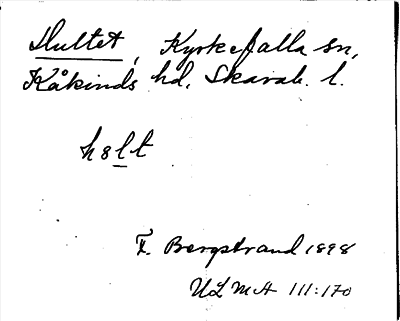 Hultet, Kyrkefalla sn,
Kåkinds hd. Skarab. l.
h8lt
F. Bergstrand 1898
ULMA 111:170